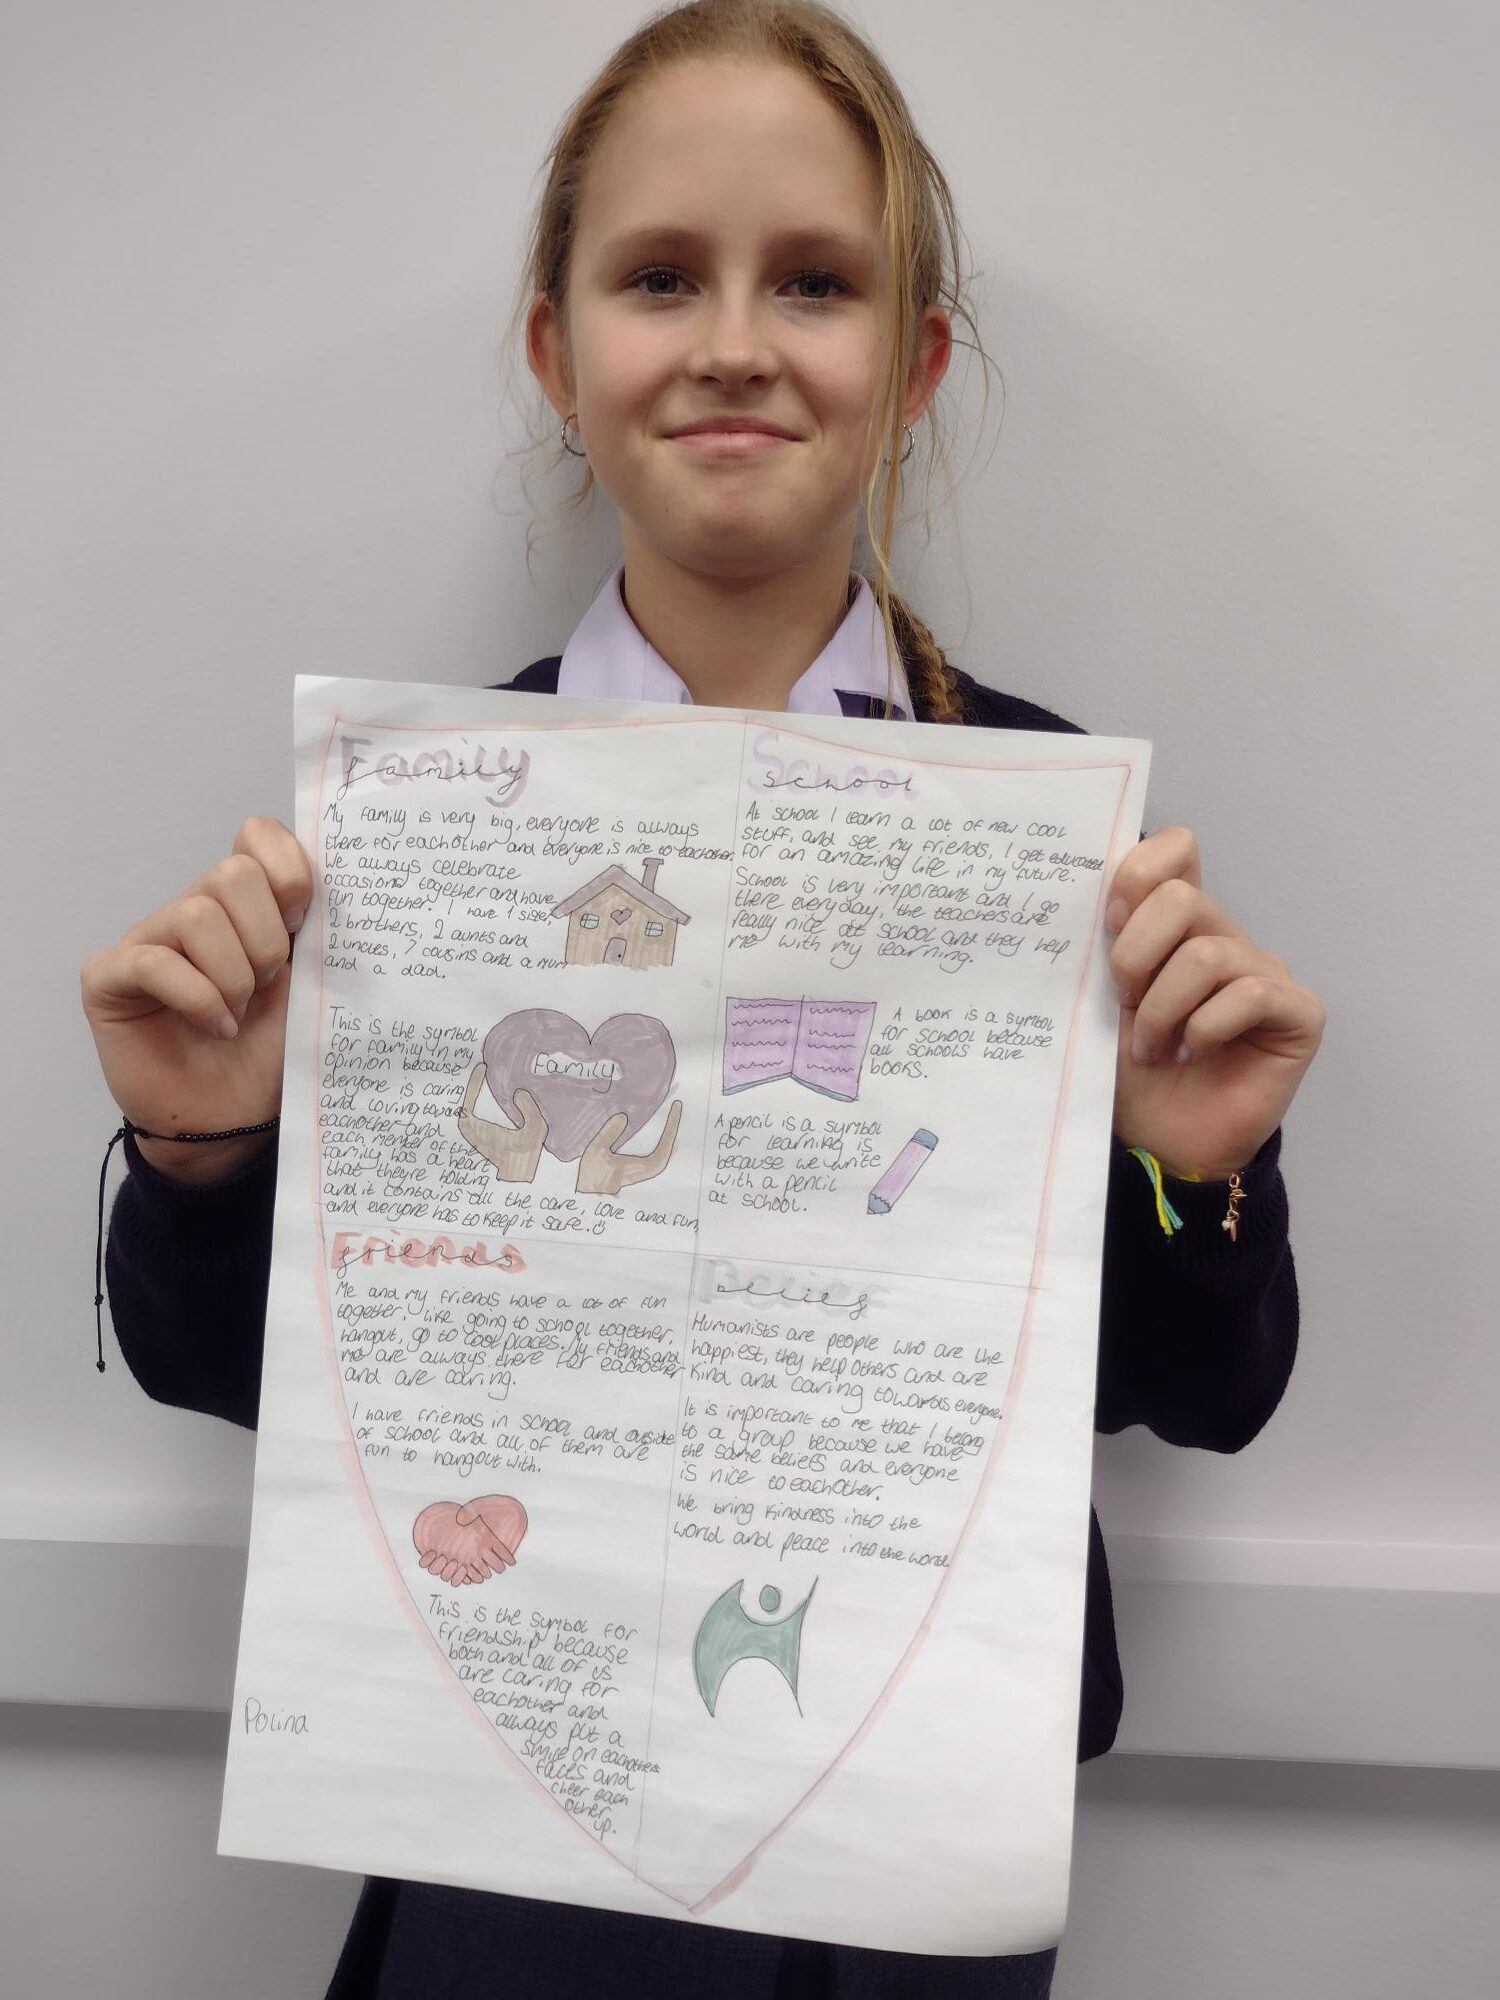 Family
family
My family is very big, everyone is always
there for eachother and everyone is nice to eachother.
We always celebrate
occasions together and have
fun together. I have 1 sister,
2 brothers, 2 aunts and
2 uncles, 7 cousins and a mum
and a dad.
This is the symbol
for family in my
opinion because
everyone is caring
and loving towards
eachother and
each member of the
family has a heart
that theyre holding
and it contains all the care, love and fun,
and everyone has to keep it safe.
Family
School
school
At school I learn a lot of new cool
stuff, and see my friends, I get educated
for an amazing life in my future.
School is very important and I go
there everyday, the teachers are
really nice at school and they help
me with my learning.
A book is a symbol
for school because
all schools have
books.
A pencil is a symbol
for learning is
because we write
with a pencil
at school.
Friends
friends
Me and my friends have a lot of fun
together, like going to school together,
hangout, go to cool places. My friends and
me are always there for eachother
and are caring.
I have friends in school and outside
of school and all of them are
fun to hangout with.
This is the symbol for
friendship because
both and all of us
are caring for
eachother and
always put a
smile on eachothers
faces and
cheer each
other
up.
Belief
belief
Humanists are people who are the
happiest, they help others and are
kind and caring towards everyone.
It is important to me that I belong
to a group because we have
the same beliefs and everyone
is nice to eachother.
We bring kindness into the
world and peace into the world
Polina